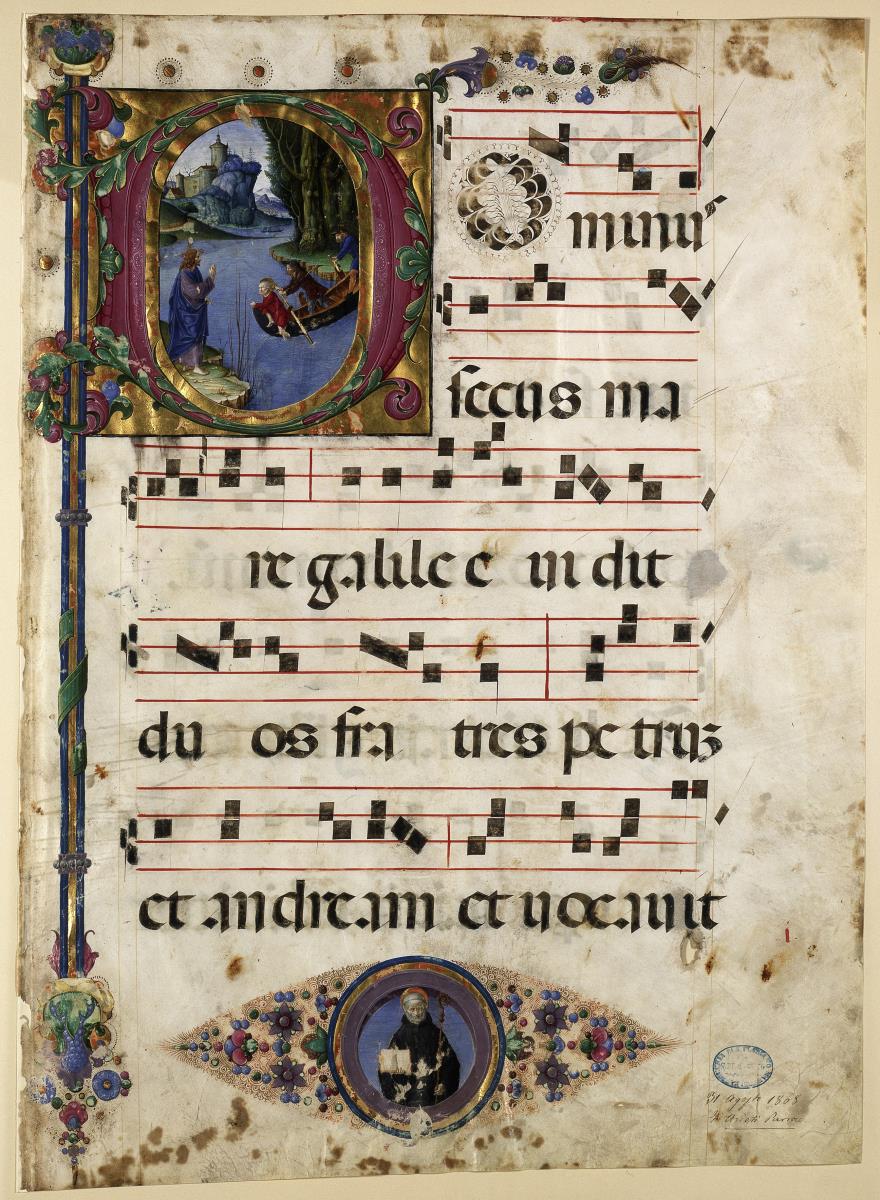 DOminus
secus ma
re galile e vi dit
du os fra tres pe truz
et andream et uocauit